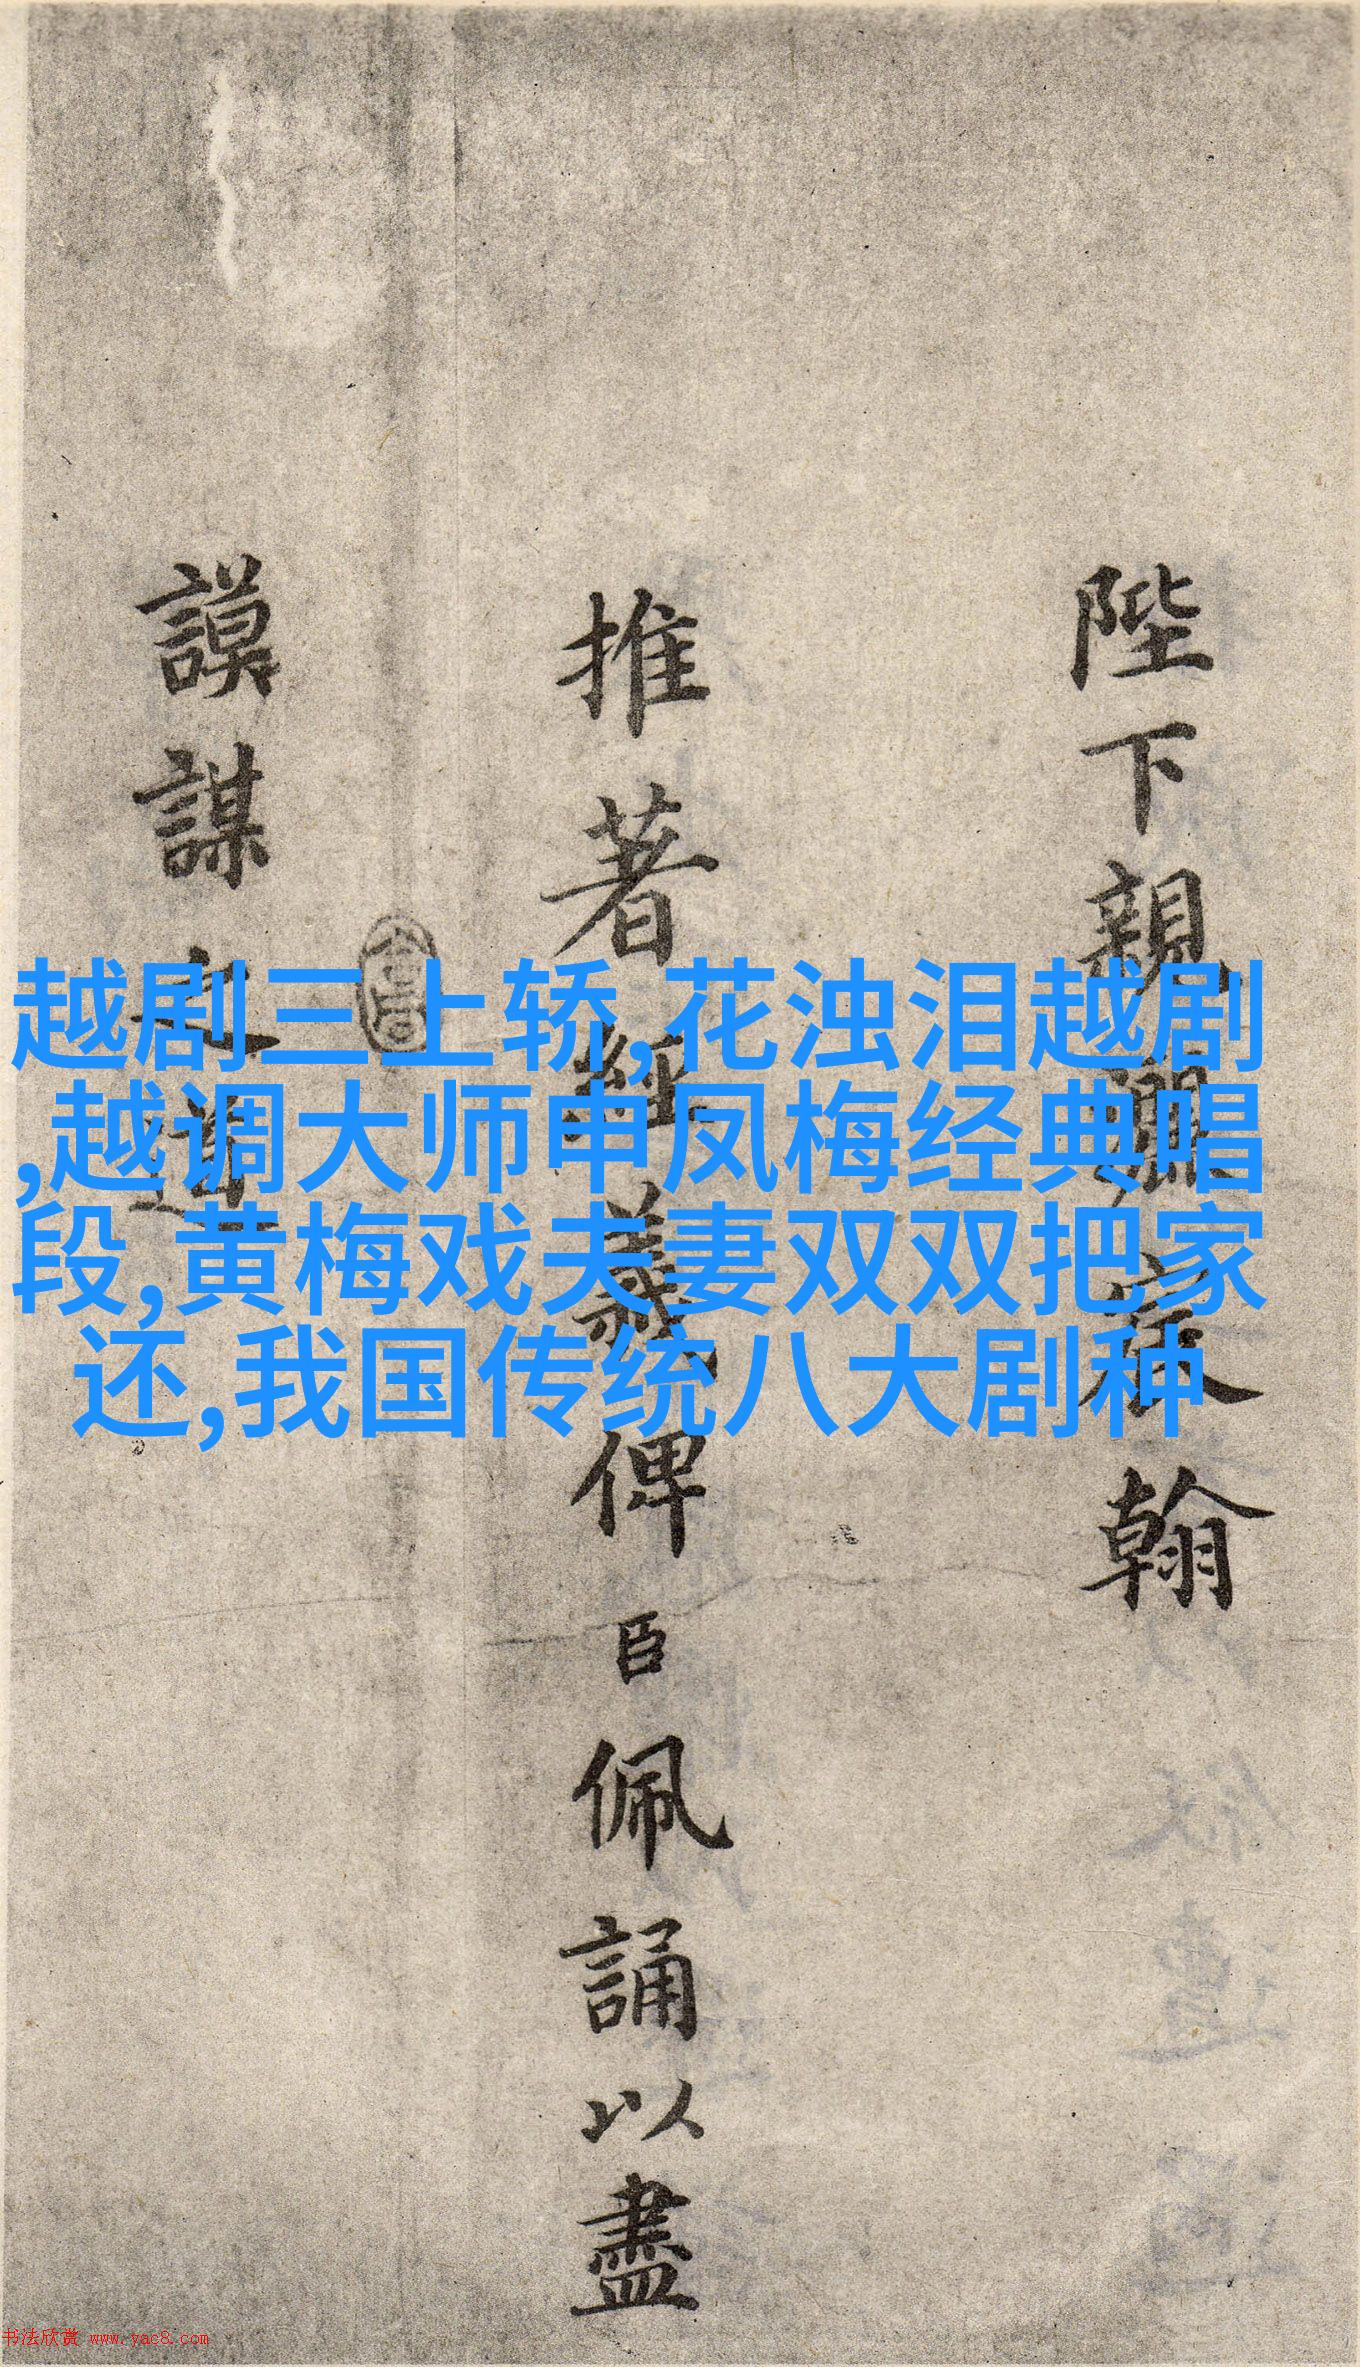 陛下親灑宸翰
推著經義俾臣佩誦以盡
謨謀之道
越剧三上轿,花浊泪越剧
,越调大师申凤梅经典唱
段,黄梅戏夫妻双双把家
还,我国传统八大剧种
书法欣赏 www.yac8.com